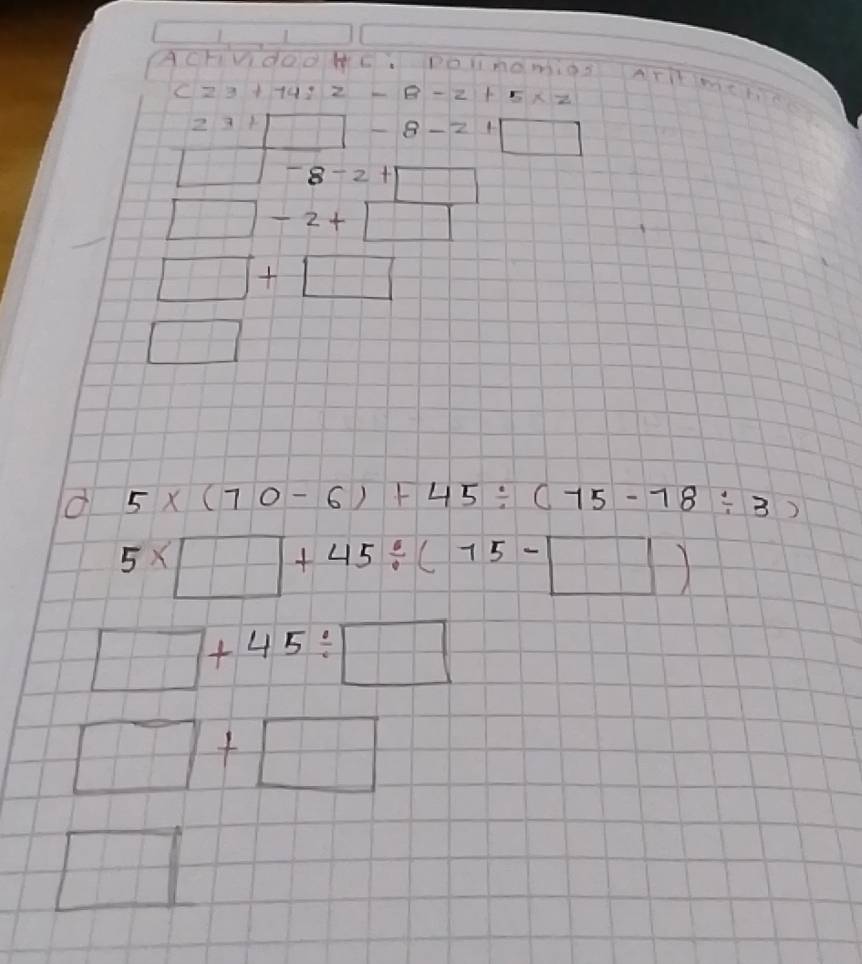 Actividad #C: Polinomios Aritmetico
C 23 + 14 : 2 - 8 - 2 + 5 x 2
23 + - 8 - 2 +
- 8 - 2 +
- 2 +
+
d 5 x (10 - 6) + 45 ÷ (15 - 18 ÷ 3)
5 x + 45 ÷ ( 15 - )
+ 45 ÷
+